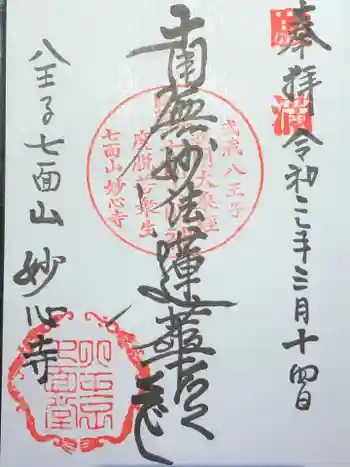 奉拝
満
令和三年三月十四日
南無妙法蓮華経
武蔵八王子
七面山妙心寺
度脱苦衆生
八王子七面山
妙心寺